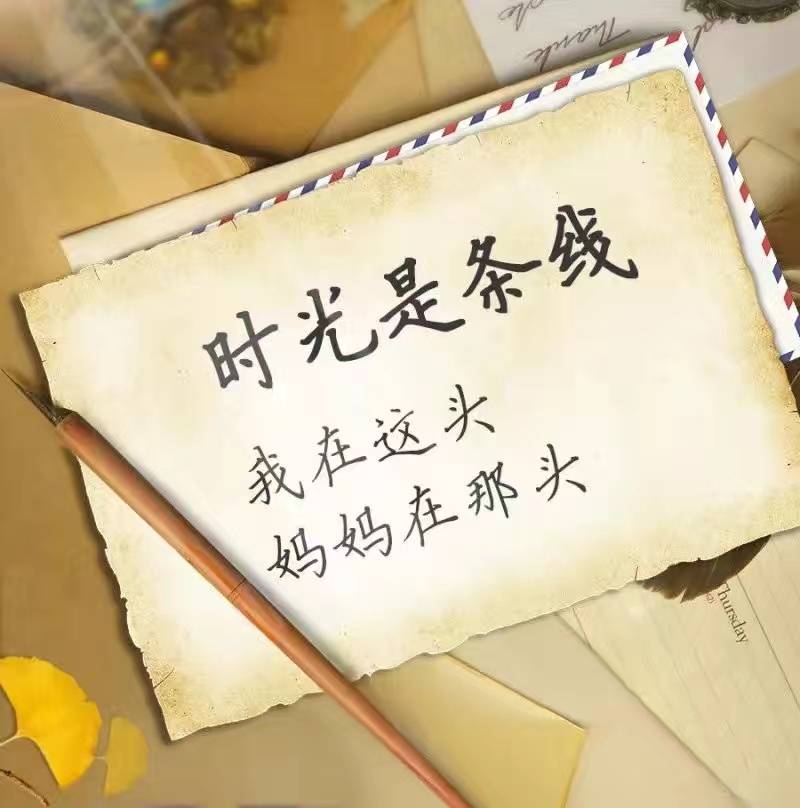 Thank
时光是条线
我在这头
妈妈在那头
Thursday